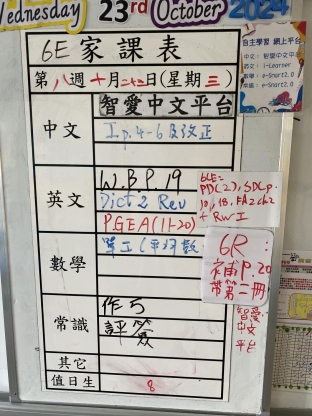 Wednesday 23rd October 2024
6E 家課表
第八週十月二十三日(星期三)
自主學習 網上平台
中文：智愛中文平台
英文：i-Learner
數學：e-Smart2.0
常識：e-Smart2.0
中文
智愛中文平台
工p.4-6及改正
英文
W.B.P.19
Dict 2 Rev
PGEA(11-20)
6E=
PD(2), SDCp.
10,18, FA2ch2
+ RWI
數學
6R:
補P.20
帶第二冊
智愛
中文
平台
常識
作5
評簽
其它
值日生
8